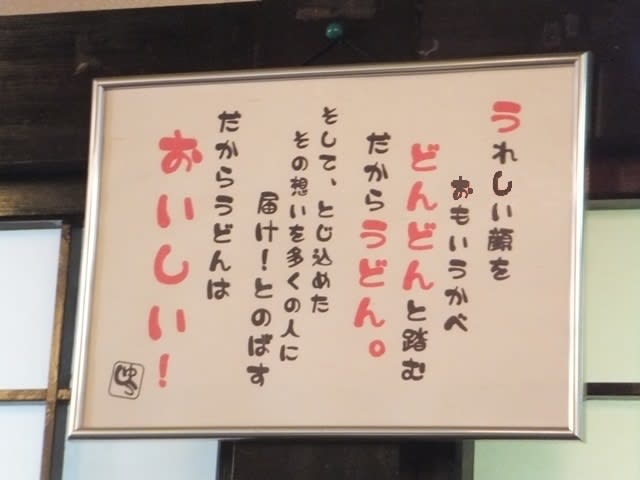 うれしい顔を
おもいうかべ
どんどんと踏む
だからうどん。
そして、とじ込めた
その想いを多くの人に
届け！とのばす
だからうどんは
おいしい！